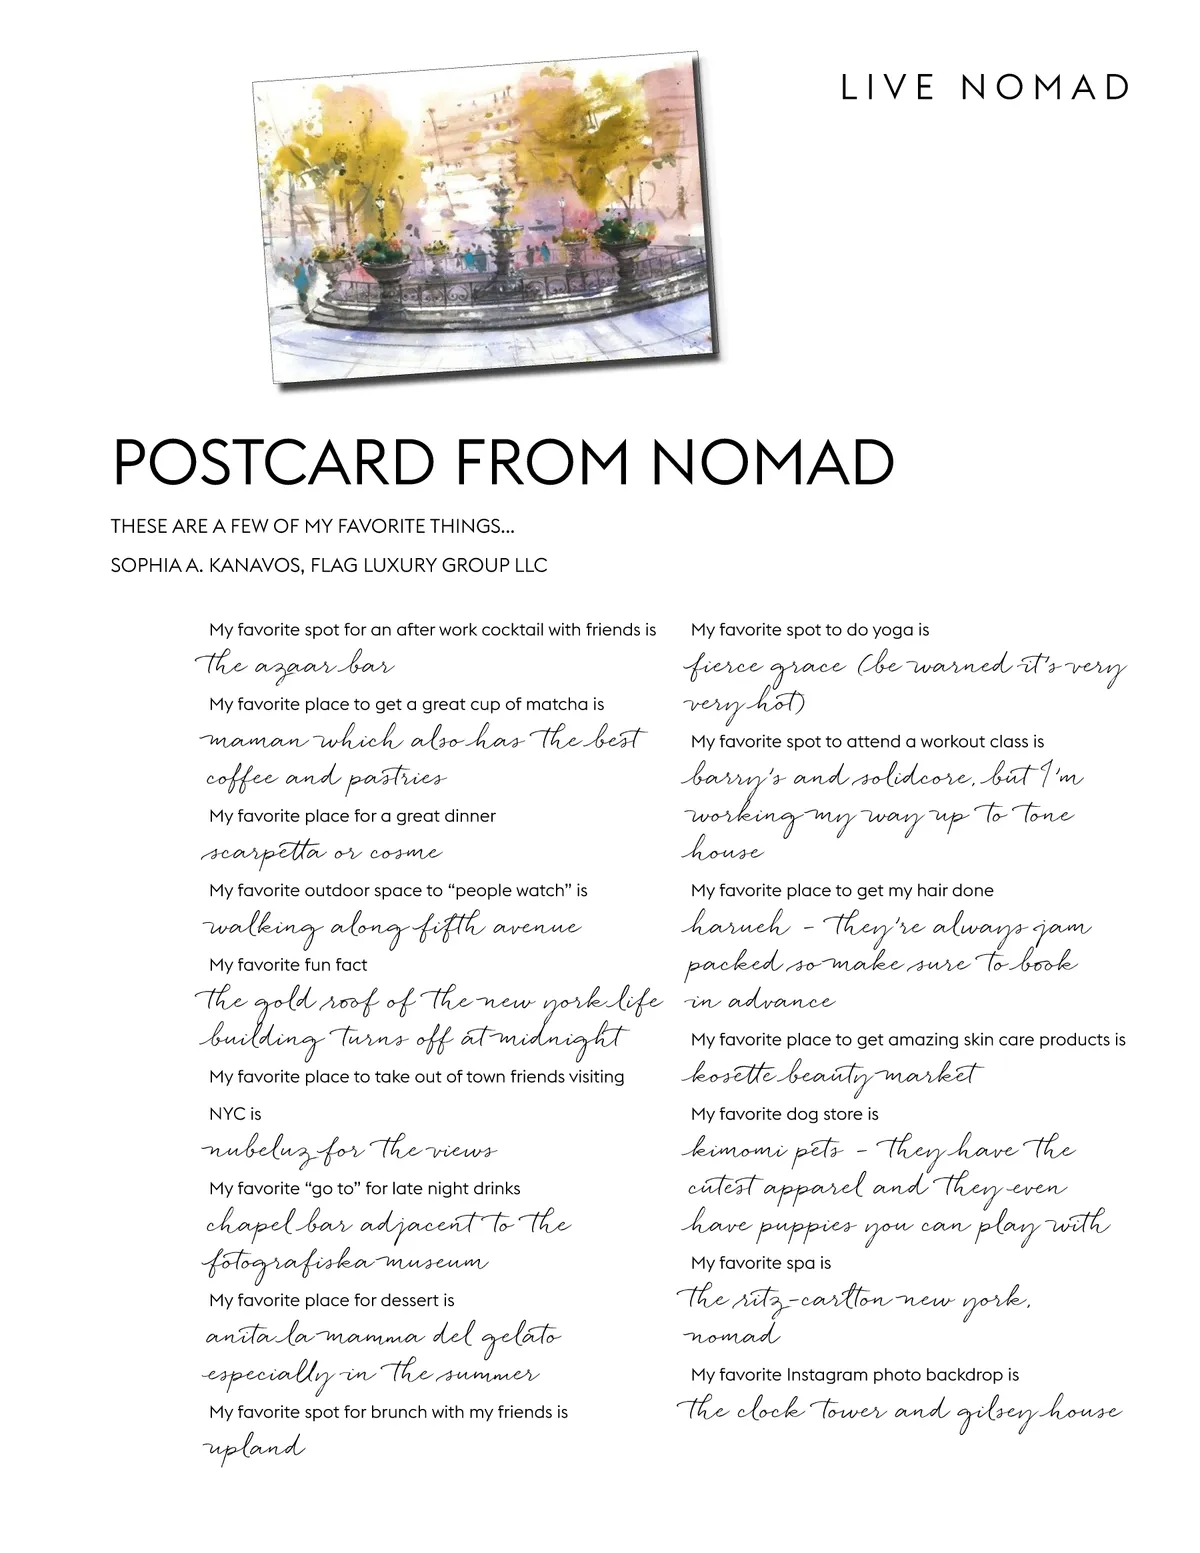 LIVE NOMAD
POSTCARD FROM NOMAD
THESE ARE A FEW OF MY FAVORITE THINGS...
SOPHIA A. KANAVOS, FLAG LUXURY GROUP LLC
My favorite spot for an after work cocktail with friends is
the azaar bar
My favorite place to get a great cup of matcha is
maman which also has the best
coffee and pastries
My favorite place for a great dinner
scarpetta or cosme
My favorite outdoor space to “people watch” is
walking along fifth avenue
My favorite fun fact
the gold roof of the new york life
building turns off at midnight
My favorite place to take out of town friends visiting
NYC is
nubeluz for the views
My favorite “go to” for late night drinks
chapel bar adjacent to the
fotografiska museum
My favorite place for dessert is
anita la mamma del gelato
especially in the summer
My favorite spot for brunch with my friends is
upland
My favorite spot to do yoga is
fierce grace (be warned it's very
very hot)
My favorite spot to attend a workout class is
barry's and solidcore, but I'm
working my way up to tone
house
My favorite place to get my hair done
harueh - they're always jam
packed so make sure to book
in advance
My favorite place to get amazing skin care products is
kosette beauty market
My favorite dog store is
kimomi pets - they have the
cutest apparel and they even
have puppies you can play with
My favorite spa is
the ritz-carlton new york,
nomad
My favorite Instagram photo backdrop is
the clock tower and gilsey house